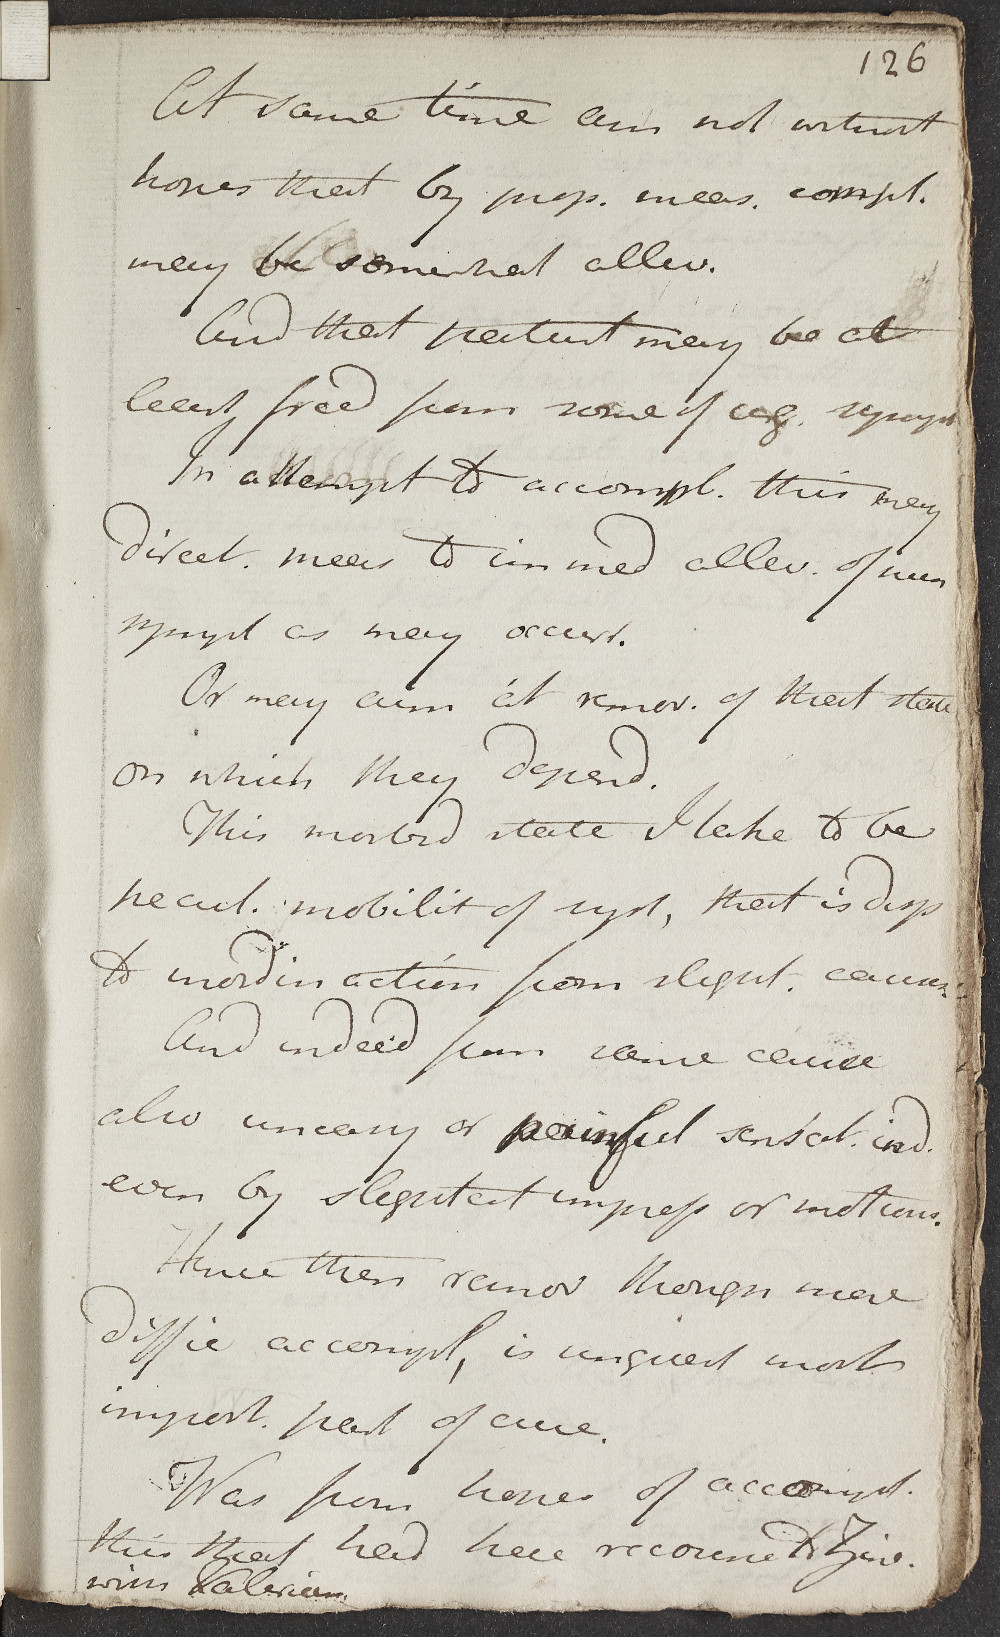 126
At same time am not without
hopes that by prop. meas. compl.
may be somewhat allev.
And that patient may be at
least freed from some of urg. sympt
In attempt to accompl. this may
direct. meas to immed allev. of such
sympt as may occurr.
Or may aim at remov. of that state
on which they depend.
This morbid state I take to be
pecul. mobilit of syst, that is disp
to inordin action from slight. causes
And indeed from same cause
also uneasy or painful sensat. ind.
even by slightest impress or motions.
Hence then remov though more
diffic accompl, is unquest most
import. part of cure.
Was from hopes of accompl.
this that had here recourse to Zinc.
with Valerian.